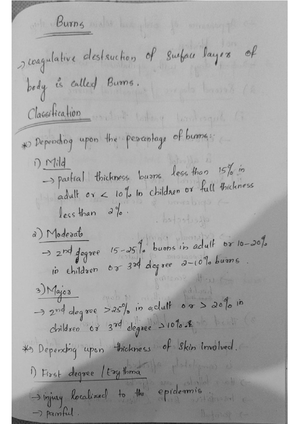 Burns
→ coagulative destruction of surface layer of
body is called Burns.
Classification
*) Depending upon the percentage of burns:
1) Mild
→ partial thickness burns less than 15% in
adult or < 10% in children or full thickness
less than 2%.
2) Moderate
→ 2nd degree 15-25% burns in adult or 10-20%
in children or 3rd degree 2-10% burns.
3) Major
→ 2nd degree >25% in adult or > 20% in
children or 3rd degree > 10%.
*) Depending upon thickness of skin involved.
1) First degree / Erythema
→ injury localised to the epidermis
→ painful